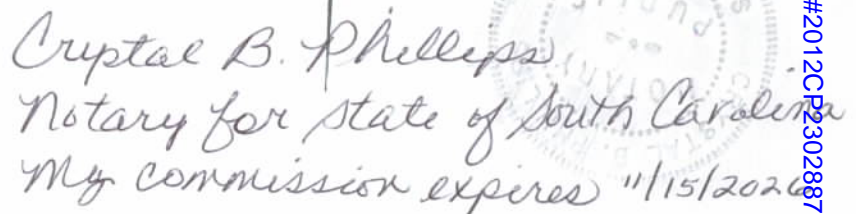 Cryptal B. Phillips
Notary for state of South Carolina
My commission expires 11/15/2026
#2012CP2302887